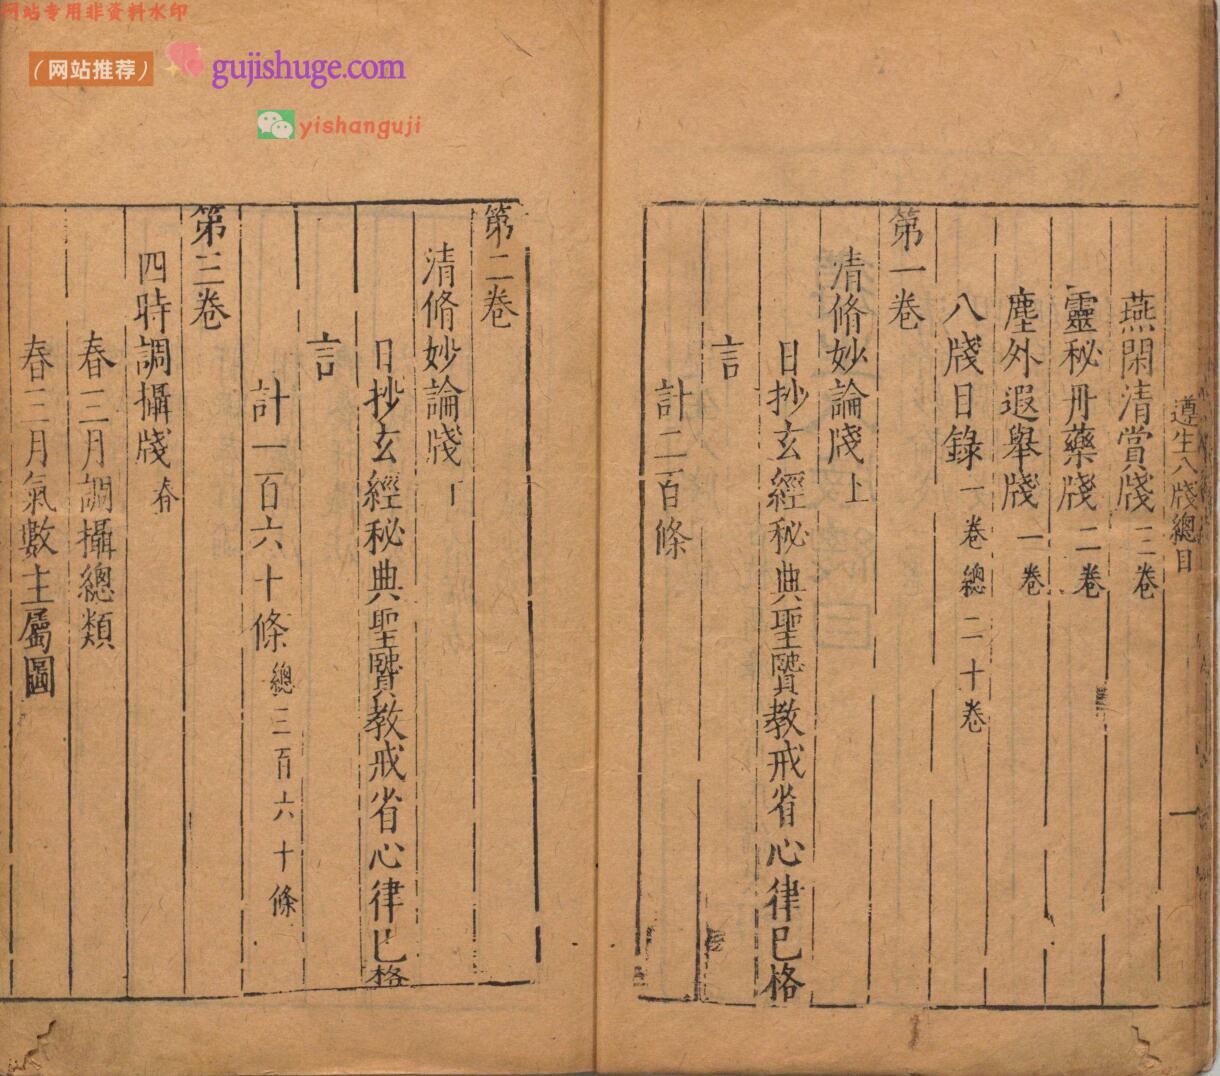 网站专用非资料水印
（网站推荐）
gujishuge.com
yishanguji
遵生八牋總目
一
燕閑清賞牋三卷
靈秘丹藥牋二卷
塵外遐舉牋一卷
八牋目錄一卷總二十卷
第一卷
清脩妙論牋上
日抄玄經秘典聖賢教戒省心律己格
言
計二百條
第二卷
清脩妙論牋下
日抄玄經秘典聖賢教戒省心律己格
言
計一百六十條總三百六十條
第三卷
四時調攝牋春
春三月調攝總類
春三月氣數主屬圖